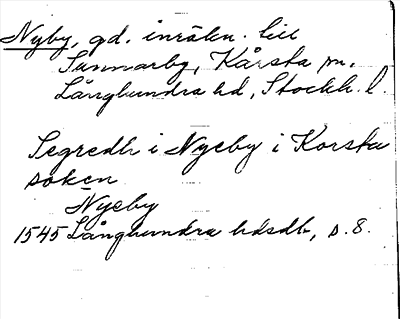 Nyby, gd. inräkn. till
Sannarby, Kårsta sn.
Långhundra hd, Stockh. l.
Segredh i Nyeby i Korsta
soken
Nyeby
1545 Långhundra hdsdb, s. 8.